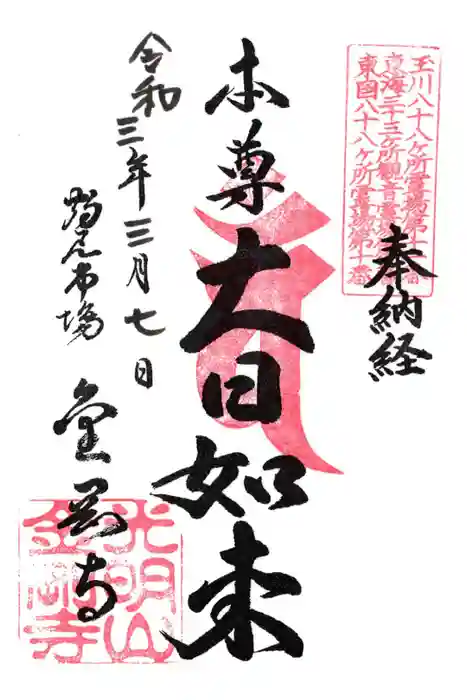 玉川八十八ヶ所霊場第十番
東海三十三ヶ所観音霊場
東国八十八ヶ所霊場第十番
奉納経
本尊大日如来
令和三年三月七日
鶴見市場
金剛寺
光明山
金剛寺